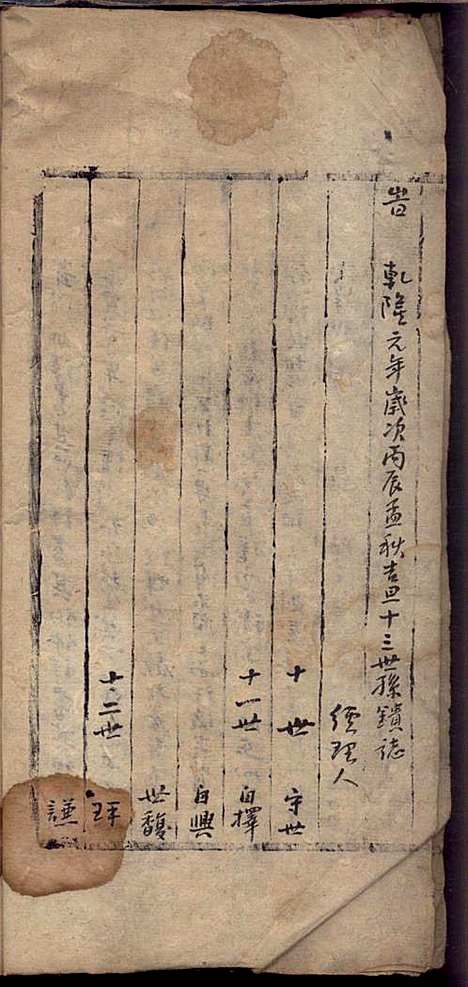 旹 乾隆元年歲次丙辰孟秋吉旦十三世孫鐼誌
經理人
十世 守世
十一世 自擇
自興
世馥
十二世 玶
謙